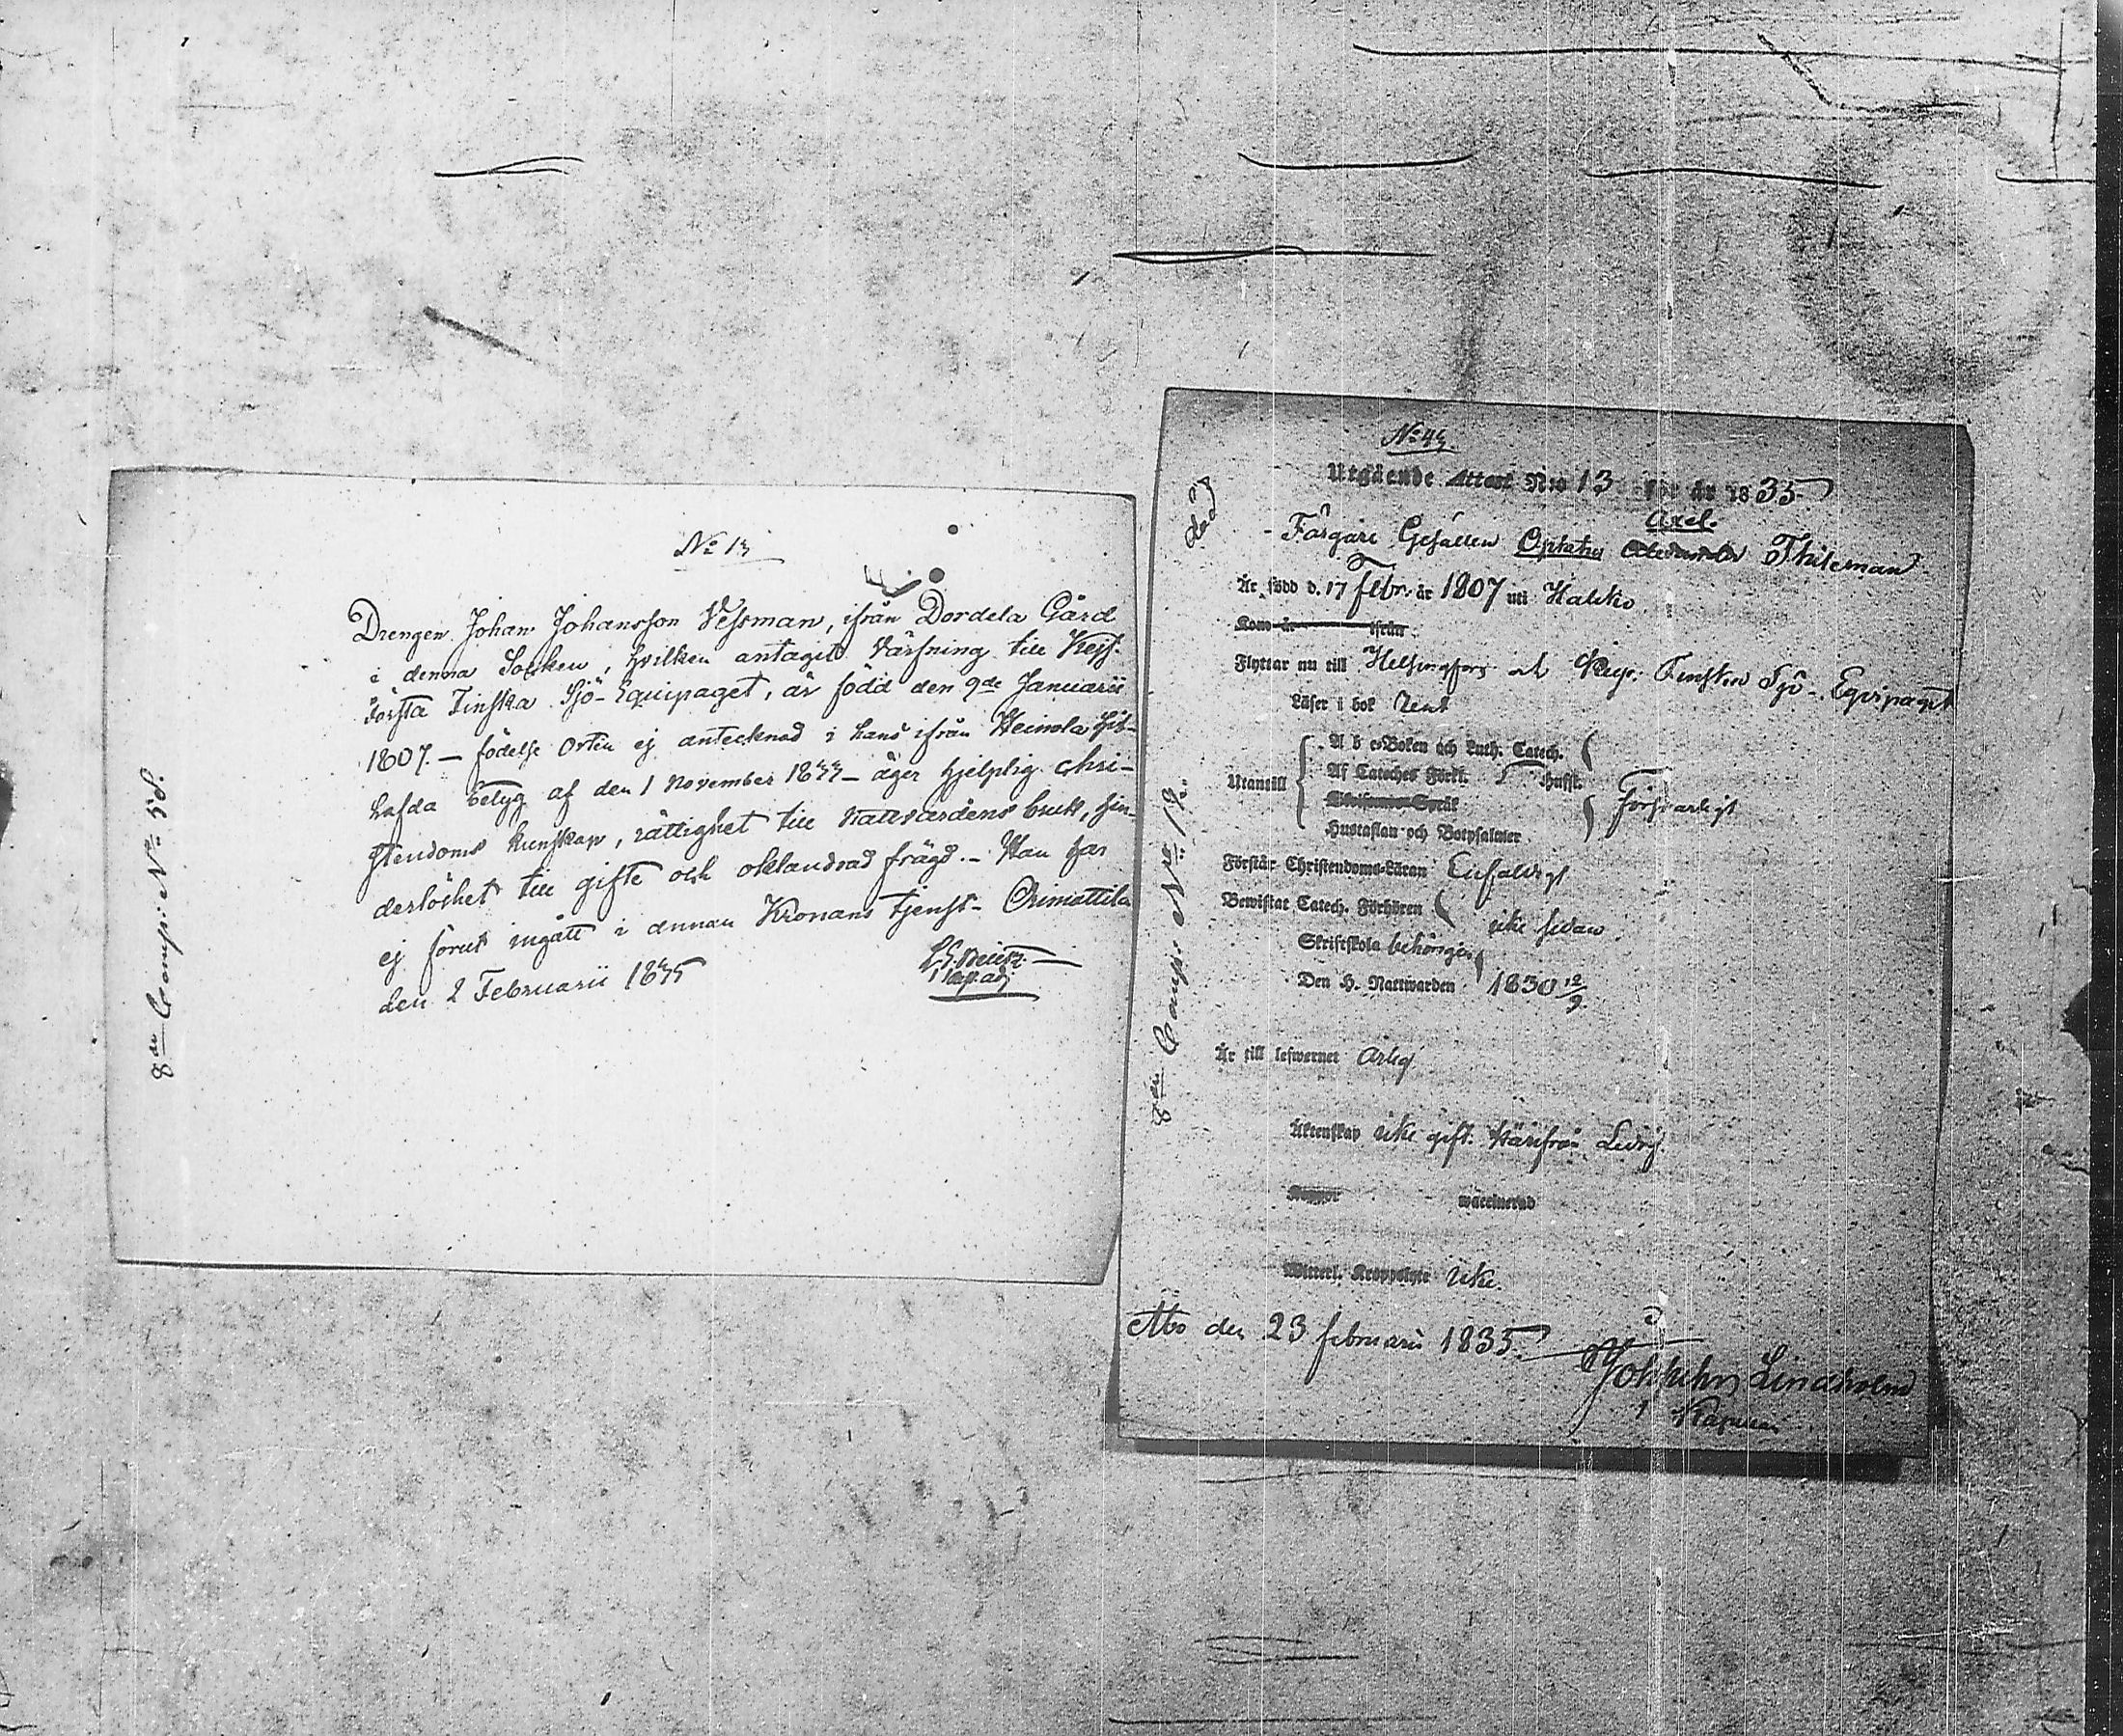 No 13
Drengen Johan Johansson Vessman, ifrån Dordela Gård
i denna Socken, hvilken antagit Värfning till Kejs.
Första Finska Sjö-Equipaget, är född den 9de Januarii
1807. — födelse orten ej antecknad i hans ifrån Heinola hit-
hafda betyg af den 1 November 1833 — äger hjelplig chri-
stendoms kunskap, rättighet till nattvardens bruk, hin-
derlöshet till gifte och oklandrad frägd. — Han har
ej förut ingått i annan Kronans tjenst. — Orimattila
den 2 Februarii 1835
8de Comp: No 58.
No 43
Utgående Attest Nro 13 för år 1835
Axel.
Färgare Gesällen Thileman
Är född d. 17 Febr. år 1807 uti Halikko
Kom år ifrån
Flyttar nu till Helsingfors och Kejs. Finska Sjö-Equipaget
Läser i bok Rent
Utantill
A b c-Boken och Luth. Catech.
Af Cateches Förkl. Husft.
Hustaflan och Botpsalmer
Försvarligt
Förstår Christendoms-Läran Enfaldigt
Bewistat Catech. Förhören icke sedan
Skriftskola behörigen
Den H. Nattwarden 1830 12/9.
Är till lefwernet ärlig
Äktenskap icke gift. härifrån Ledig.
Koppor waccinerad
Witterl. Kroppslyte icke.
Åbo den 23 februarii 1835.
Lindholm
Kaplan
8de Comp: No 12.